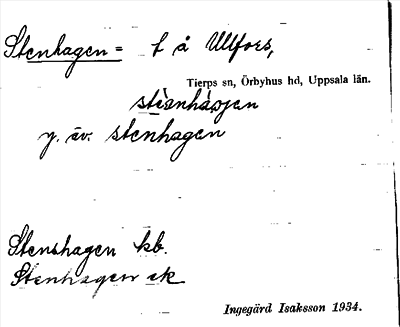 Stenhagen = t å Ullfors,
Tierps sn, Örbyhus hd, Uppsala län.
stèanháǥen
y. äv. stenhagen
Stenshagen kb.
Stenhagen ek
Ingegärd Isaksson 1934.